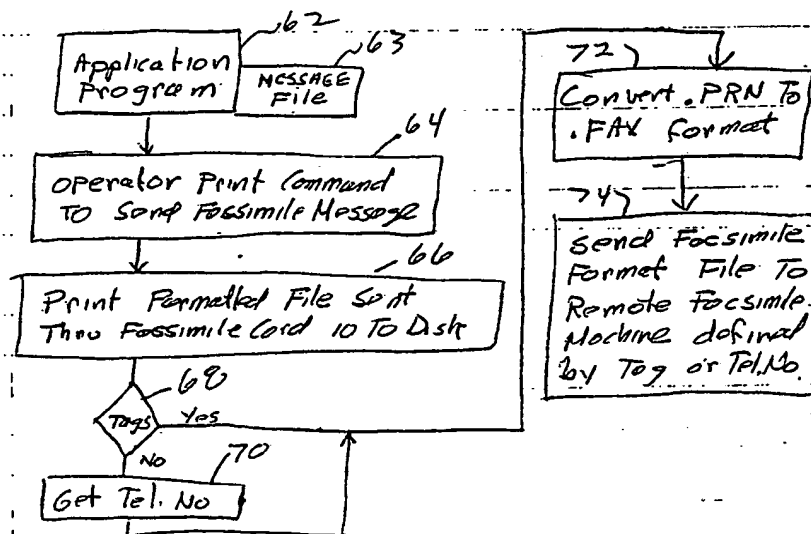 62
Application
Program
63
MESSAGE
File
64
Operator Print Command
To Send Fassimile Message
66
Print Formatted File Sent
Thru Fassimile Card 10 To Disk
68
Tags
Yes
No
70
Get Tel. No
72
Convert .PRN To
.FAX format
74
Send Facsimile
Format File To
Remote Facsimile
Machine defined
by Tag or Tel.No.